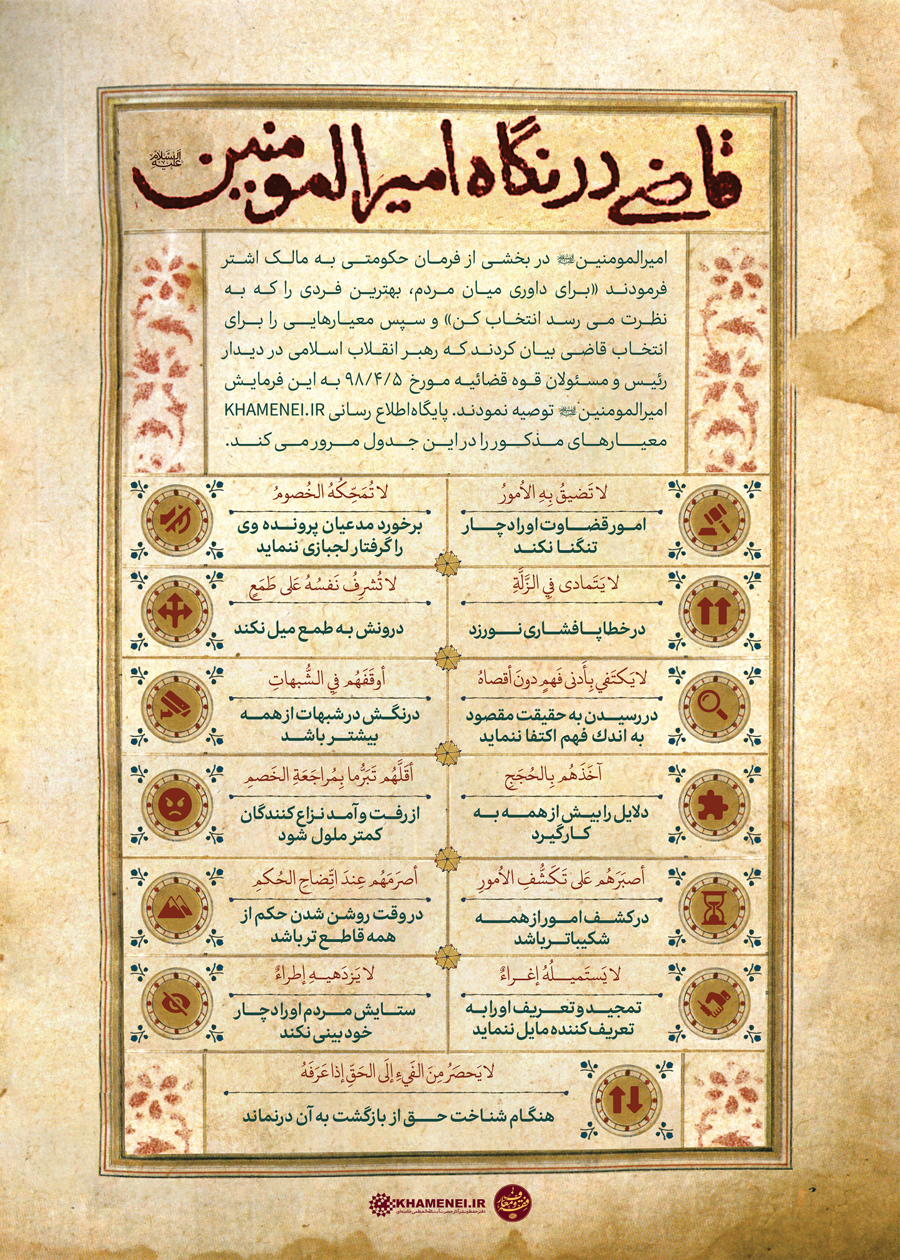 قاضی در نگاه امیرالمومنین علیه السلام
امیرالمومنین علیه السلام در بخشی از فرمان حکومتی به مالک اشتر
فرمودند «برای داوری میان مردم، بهترین فردی را که به
نظرت می رسد انتخاب کن» و سپس معیارهایی را برای
انتخاب قاضی بیان کردند که رهبر انقلاب اسلامی در دیدار
رئیس و مسئولان قوه قضائیه مورخ ۹۸/۴/۵ به این فرمایش
امیرالمومنین علیه السلام توصیه نمودند. پایگاه اطلاع رسانی KHAMENEI.IR
معیارهای مذکور را در این جدول مرور می کند.
لا تَضيقُ بِهِ الأُمورُ
امور قضاوت او را دچار
تنگنا نکند
لا تُمَحِّكُهُ الخُصومُ
برخورد مدعیان پرونده وی
را گرفتار لجبازی ننماید
لا يَتَمادى فِي الزَّلَّةِ
در خطا پافشاری نورزد
لا تُشرِفُ نَفسُهُ عَلى طَمَعٍ
درونش به طمع میل نکند
لا يَكتَفي بِأَدنى فَهمٍ دونَ أقصاهُ
در رسیدن به حقیقت مقصود
به اندك فهم اکتفا ننماید
أوقَفَهُم فِي الشُّبهاتِ
درنگش در شبهات از همه
بیشتر باشد
آخَذَهُم بِالحُجَجِ
دلایل را بیش از همه به
کار گیرد
أقَلَّهُم تَبَرُّما بِمُراجَعَةِ الخَصمِ
از رفت و آمد نزاع کنندگان
کمتر ملول شود
أصبَرَهُم عَلى تَكَشُّفِ الأُمورِ
در کشف امور از همه
شکیباتر باشد
أصرَمَهُم عِندَ اتِّضاحِ الحُكمِ
در وقت روشن شدن حکم از
همه قاطع تر باشد
لا يَستَميلُهُ إغراءٌ
تمجید و تعریف او را به
تعریف کننده مایل ننماید
لا يَزدَهيهِ إطراءٌ
ستایش مردم او را دچار
خودبینی نکند
لا يَحصَرُ مِنَ الفَيءِ إلَى الحَقِّ إذا عَرَفَهُ
هنگام شناخت حق از بازگشت به آن درنماند
KHAMENEI.IR